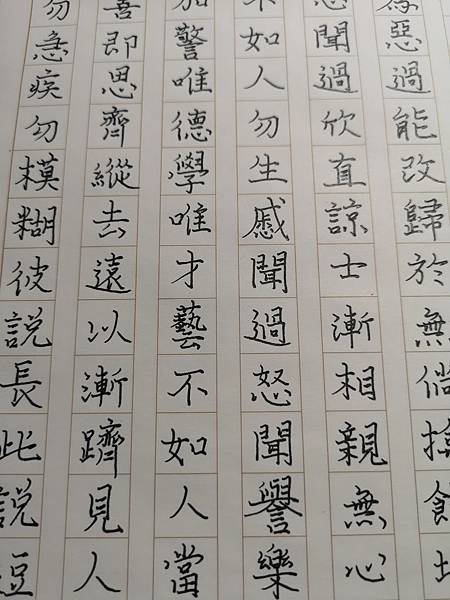 惡過能改歸於無倘揜飾
聞過欣直諒士漸相親無心
不如人勿生慼聞過怒聞譽樂
加警唯德學唯才藝不如人當
善即思齊縱去遠以漸躋見人
勿急疾勿模糊彼說長此說短